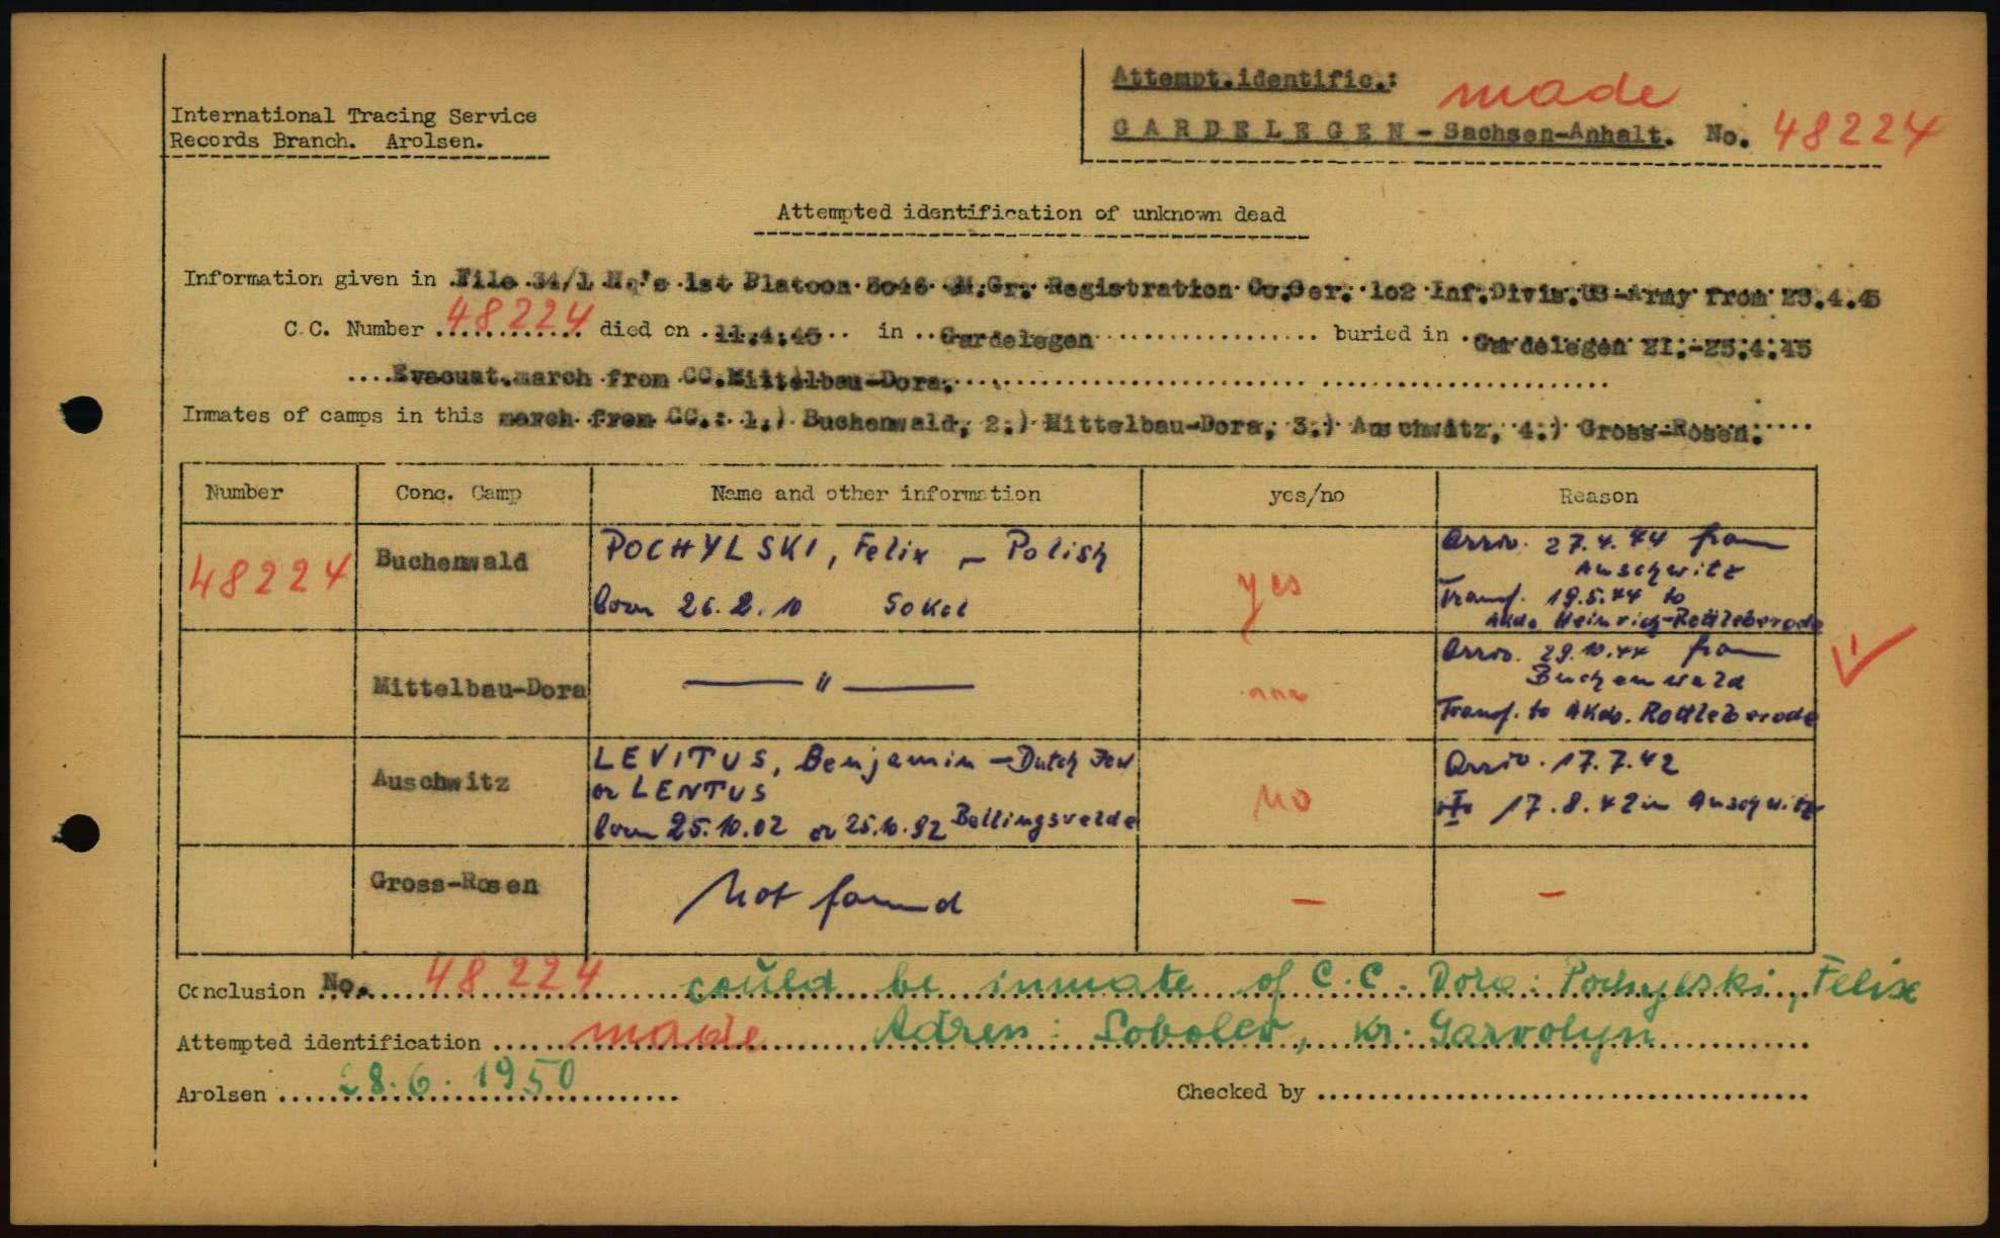 Attempt.identific.: made
International Tracing Service
Records Branch. Arolsen.
GARDELEGEN - Sachsen-Anhalt. No. 48224
Attempted identification of unknown dead
Information given in File 34/1 Hq's 1st Platoon 3046 M.Gr. Registration Co.Ger. 102 Inf.Divis.US-Army from 25.4.45
C.C. Number 48224 died on 11.4.45 in Gardelegen buried in Gardelegen 21.-25.4.45
Evacuat.march from CC.Mittelbau-Dora.
Inmates of camps in this march from CC.: 1.) Buchenwald, 2.) Mittelbau-Dora, 3.) Auschwitz, 4.) Gross-Rosen.
Number Conc. Camp Name and other information yes/no Reason
48224 Buchenwald POCHYLSKI, Felix - Polish yes Arriv. 27.4.44 from
Auschwitz
born 26.2.10 Sokol Transf. 19.5.44 to
Akdo Heinrich-Rottleberode
Mittelbau-Dora — " — Arriv. 29.10.44 from
Buchenwald
Transf. to AKdo. Rottleberode
Auschwitz LEVITUS, Benjamin - Dutch Jew no Arriv. 17.7.42
or LENTUS
born 25.10.02 or 25.10.92 Bellingsvelde 17.8.42 in Auschwitz
Gross-Rosen Not found - -
Conclusion No. 48224 could be inmate of C.C. Dora: Pochylski, Felix
Attempted identification made Adress: Sobolew, Kr. Garvolyn
Arolsen 28.6.1950 Checked by